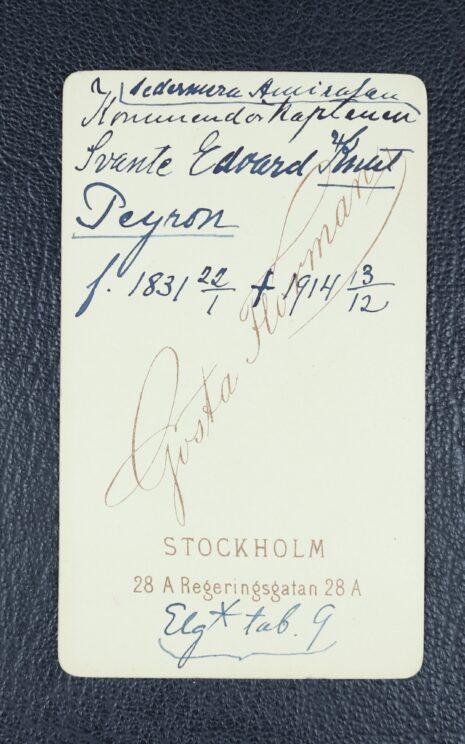 sedermera Amiralen
Kommendörkaptenen
Svante Edvard Knut
Peyron
f. 1831 22/1 † 1914 13/12
Gösta Florman
STOCKHOLM
28 A Regeringsgatan 28 A
Elg tab. 9